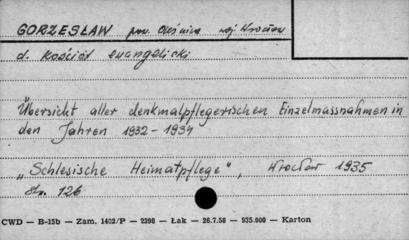 GORZESŁAW pow. Oleśnica woj Wrocław
d. kościół ewangelicki
Übersicht aller denkmalpflegerischen Einzelmassnahmen in
den Jahren 1932-1934
„Schlesische Heimatpflege", Wrocław 1935
str. 126
CWD — B-15b — Zam. 1402/P — 2398 — Łak — 26.7.58 — 935.000 — Karton